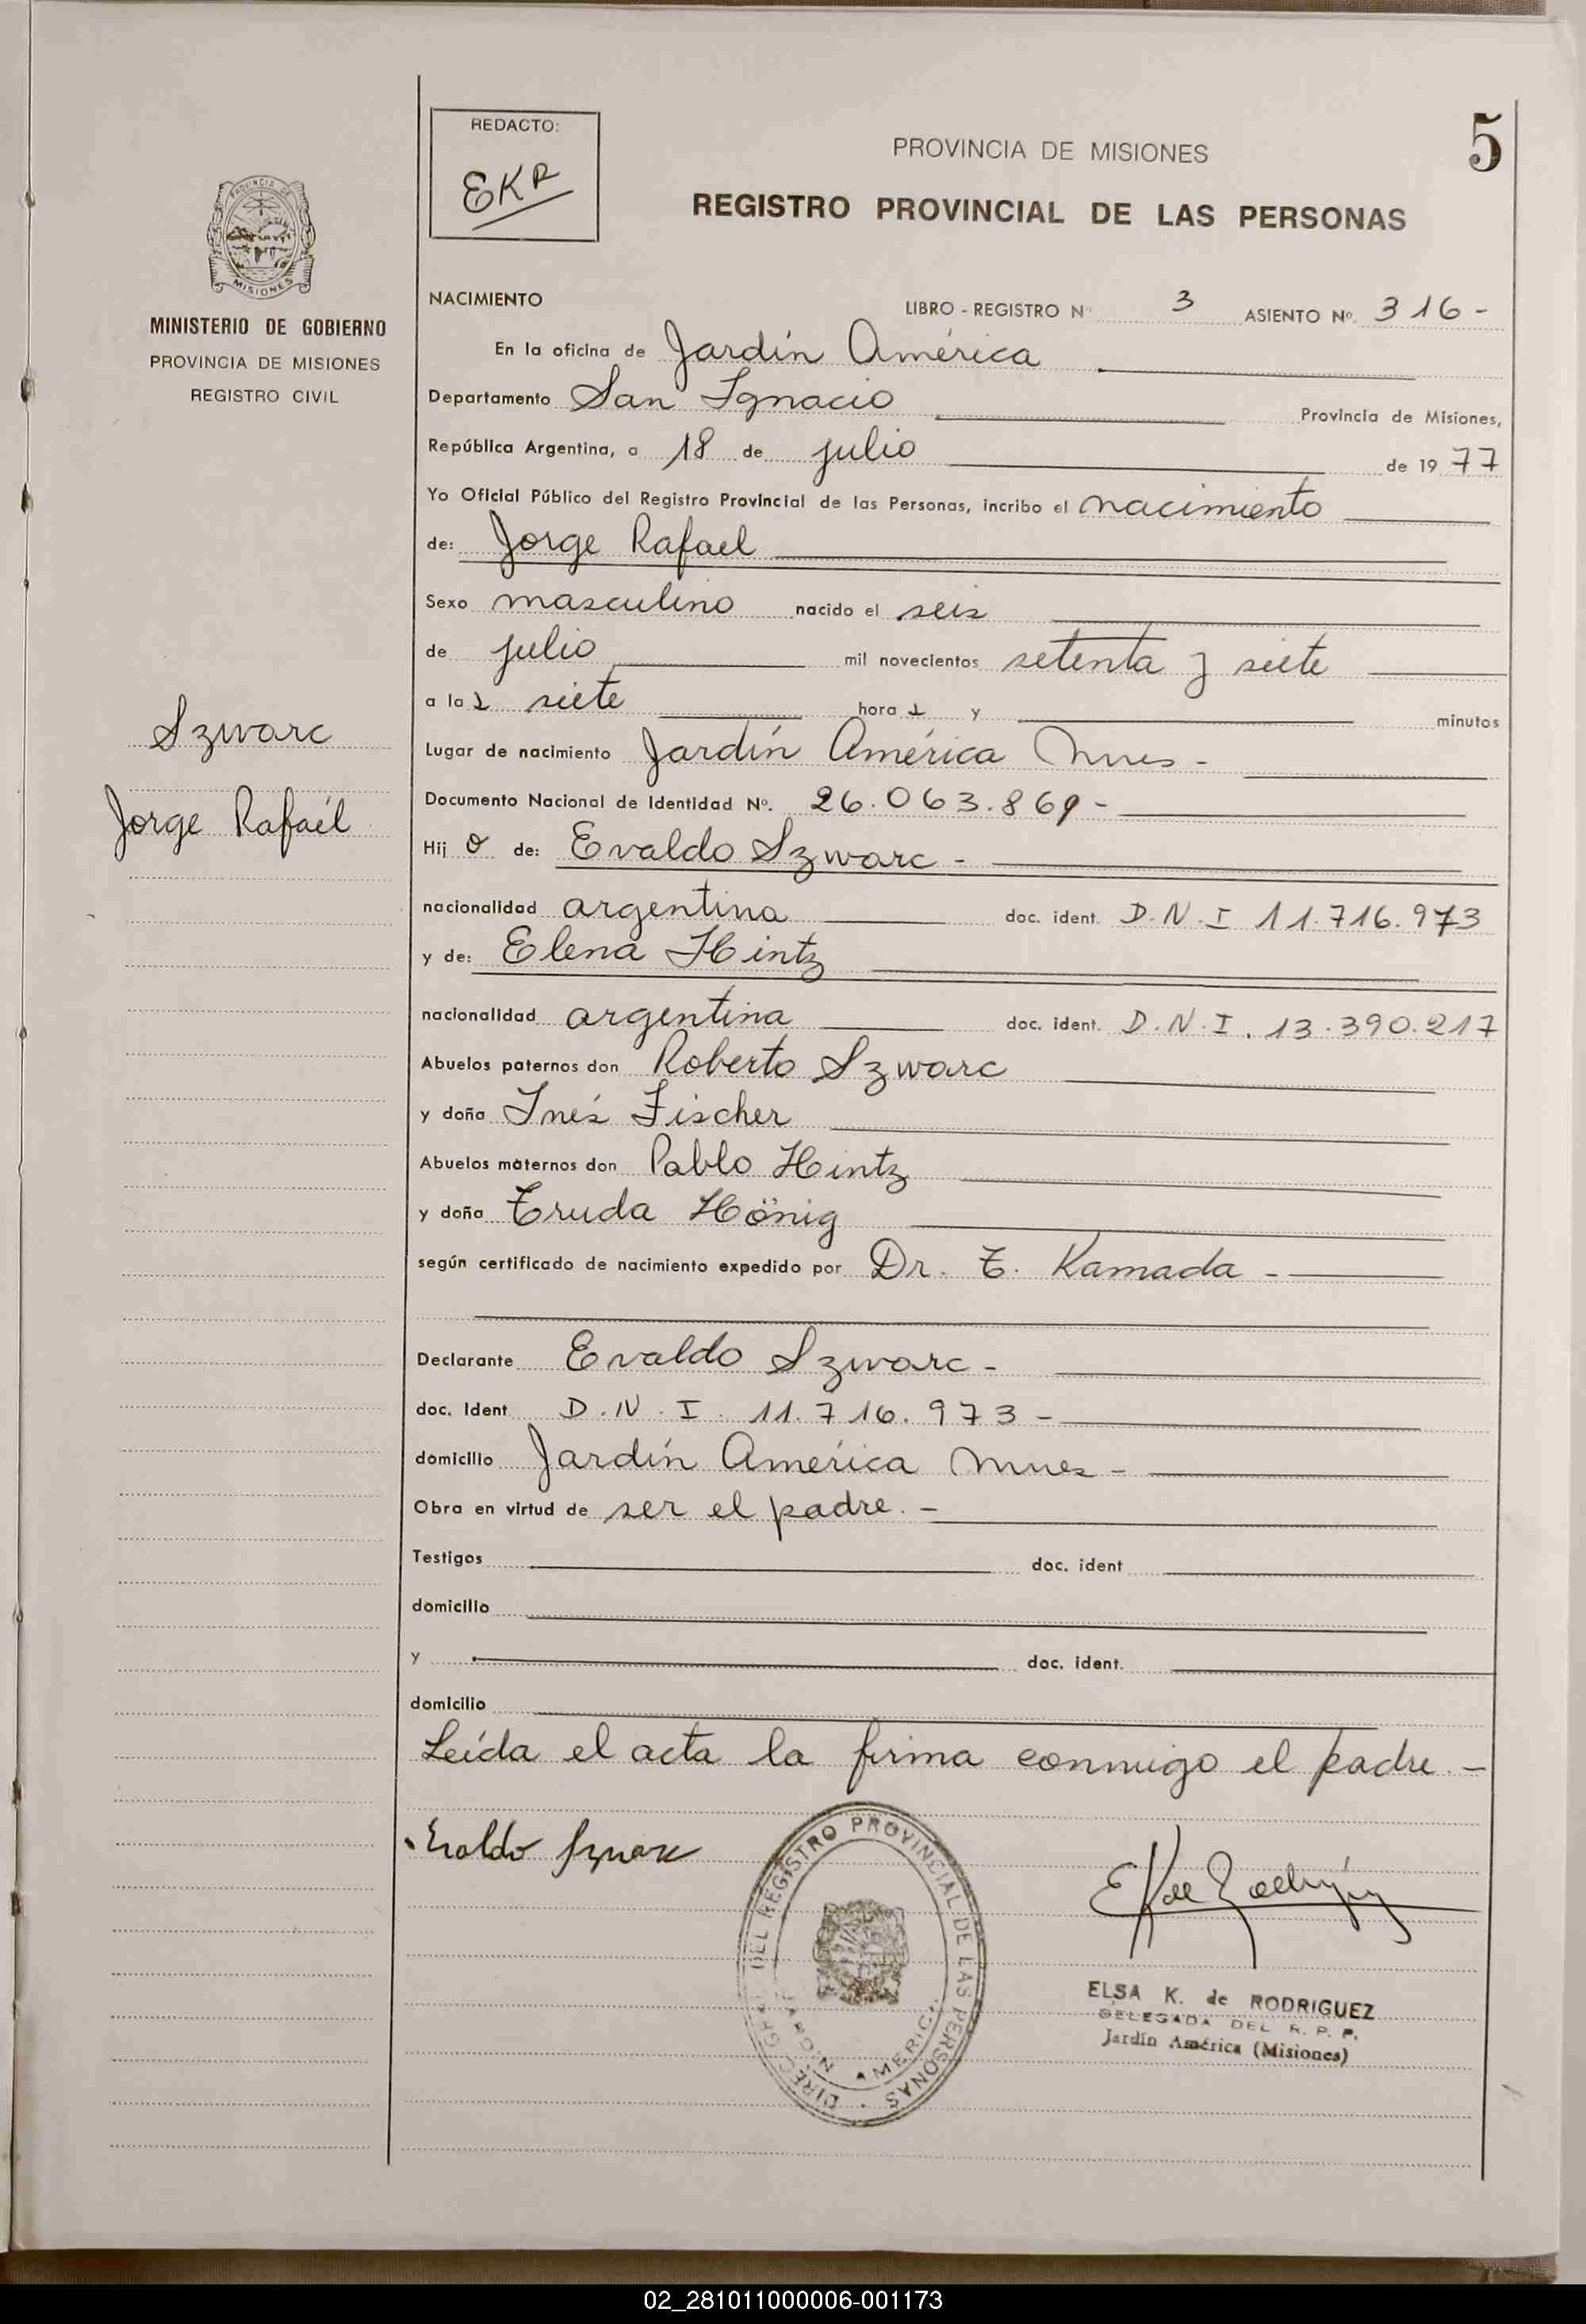 REDACTO:
EKR
5
PROVINCIA DE MISIONES
REGISTRO PROVINCIAL DE LAS PERSONAS
PROVINCIA DE
MISIONES
MINISTERIO DE GOBIERNO
PROVINCIA DE MISIONES
REGISTRO CIVIL
NACIMIENTO LIBRO - REGISTRO Nº 3 ASIENTO Nº 316 -
En la oficina de Jardín América
Departamento San Ignacio Provincia de Misiones,
República Argentina, a 18 de julio de 1977
Yo Oficial Público del Registro Provincial de las Personas, incribo el nacimiento
de: Jorge Rafael
Sexo masculino nacido el seis
de julio mil novecientos setenta y siete
a las siete horas y minutos
Szwarc
Jorge Rafaél
Lugar de nacimiento Jardín América Mnes -
Documento Nacional de Identidad Nº. 26.063.869 -
Hijo de: Evaldo Szwarc -
nacionalidad argentina doc. ident. D.N.I 11.716.973
y de: Elena Hintz
nacionalidad argentina doc. ident. D.N.I. 13.390.217
Abuelos paternos don Roberto Szwarc
y doña Inés Fischer
Abuelos maternos don Pablo Hintz
y doña Truda Hönig
según certificado de nacimiento expedido por Dr. T. Kamada -
Declarante Evaldo Szwarc -
doc. Ident D.N.I. 11.716.973 -
domicilio Jardín América Mnes -
Obra en virtud de ser el padre. -
Testigos doc. ident
domicilio
y doc. ident.
domicilio
Leída el acta la firma conmigo el padre. -
Evaldo Szwarc
EK de Rodríguez
DIREC. GRAL. DEL REGISTRO PROVINCIAL DE LAS PERSONAS
JARDIN AMERICA
ELSA K. de RODRIGUEZ
DELEGADA DEL R. P. P.
Jardín América (Misiones)
02_281011000006-001173